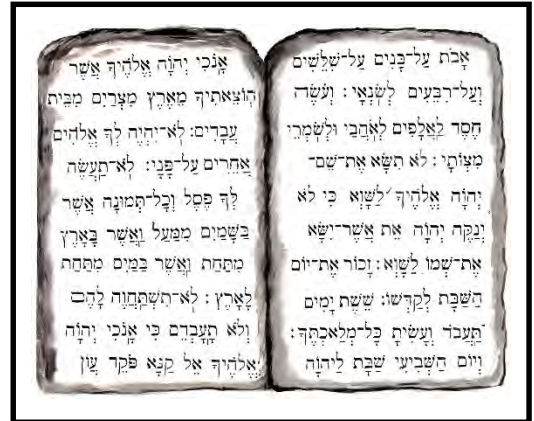 אָנֹכִי יְהוָֹה אֱלֹהֶיךָ אֲשֶׁר
הוֹצֵאתִיךָ מֵאֶרֶץ מִצְרַיִם מִבֵּית
עֲבָדִים: לֹא־יִהְיֶה לְךָ אֱלֹהִים
אֲחֵרִים עַל־פָּנָי: לֹא־תַעֲשֶׂה
לְּךָ פֶסֶל וְכָל־תְּמוּנָה אֲשֶׁר
בַּשָּׁמַיִם מִמַּעַל וַאֲשֶׁר בָּאָרֶץ
מִתָּחַת וַאֲשֶׁר בַּמַּיִם מִתַּחַת
לָאָרֶץ: לֹא־תִשְׁתַּחֲוֶה לָהֶם
וְלֹא תָעָבְדֵם כִּי אָנֹכִי יְהוָֹה
אֱלֹהֶיךָ אֵל קַנָּא פֹּקֵד עֲוֹן
אָבֹת עַל־בָּנִים עַל־שִׁלֵּשִׁים
וְעַל־רִבֵּעִים לְשֹׂנְאָי: וְעֹשֶׂה
חֶסֶד לַאֲלָפִים לְאֹהֲבַי וּלְשֹׁמְרֵי
מִצְוֹתָי: לֹא תִשָּׂא אֶת־שֵׁם־
יְהוָֹה אֱלֹהֶיךָ לַשָּׁוְא כִּי לֹא
יְנַקֶּה יְהוָֹה אֵת אֲשֶׁר־יִשָּׂא
אֶת־שְׁמוֹ לַשָּׁוְא: זָכוֹר אֶת־יוֹם
הַשַּׁבָּת לְקַדְּשׁוֹ: שֵׁשֶׁת יָמִים
תַּעֲבֹד וְעָשִׂיתָ כָּל־מְלַאכְתֶּךָ:
וְיוֹם הַשְּׁבִיעִי שַׁבָּת לַיהוָֹה